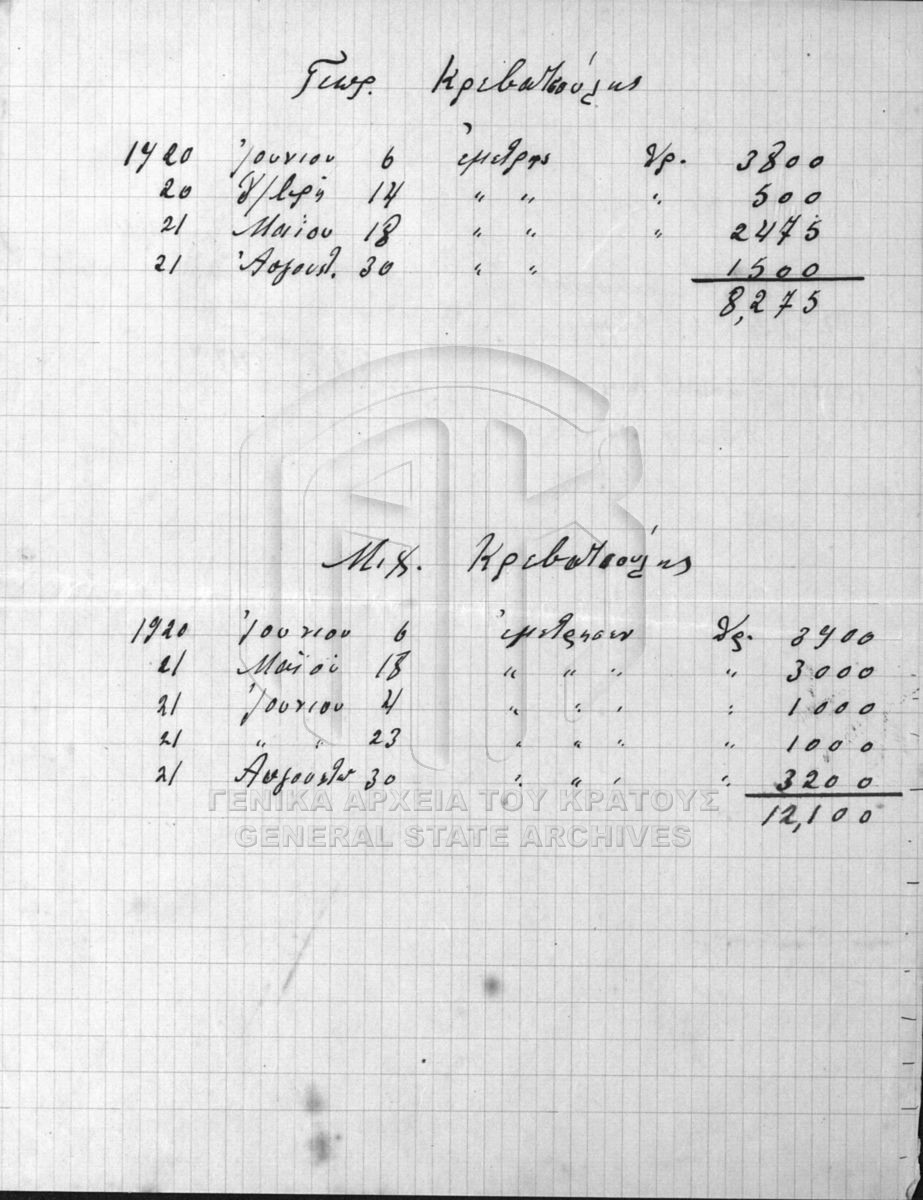 Γεωρ. Κρεβατσούλης
1920 Ἰουνίου 6 ἐμετρησ Δρ. 3800
20 14 " " " 500
21 Μαΐου 18 " " " 2475
21 Αὐγουστ. 30 " " 1500
8,275
Μιχ. Κρεβατσούλης
1920 Ἰουνίου 6 ἐμετρησεν Δρ. 3900
21 Μαΐου 18 " " " " 3000
21 Ἰουνίου 4 " " " " 1000
21 " " 23 " " " " 1000
21 Αὐγουστου 30 " " " " 3200
12,100
ΓΕΝΙΚΑ ΑΡΧΕΙΑ ΤΟΥ ΚΡΑΤΟΥΣ
GENERAL STATE ARCHIVES